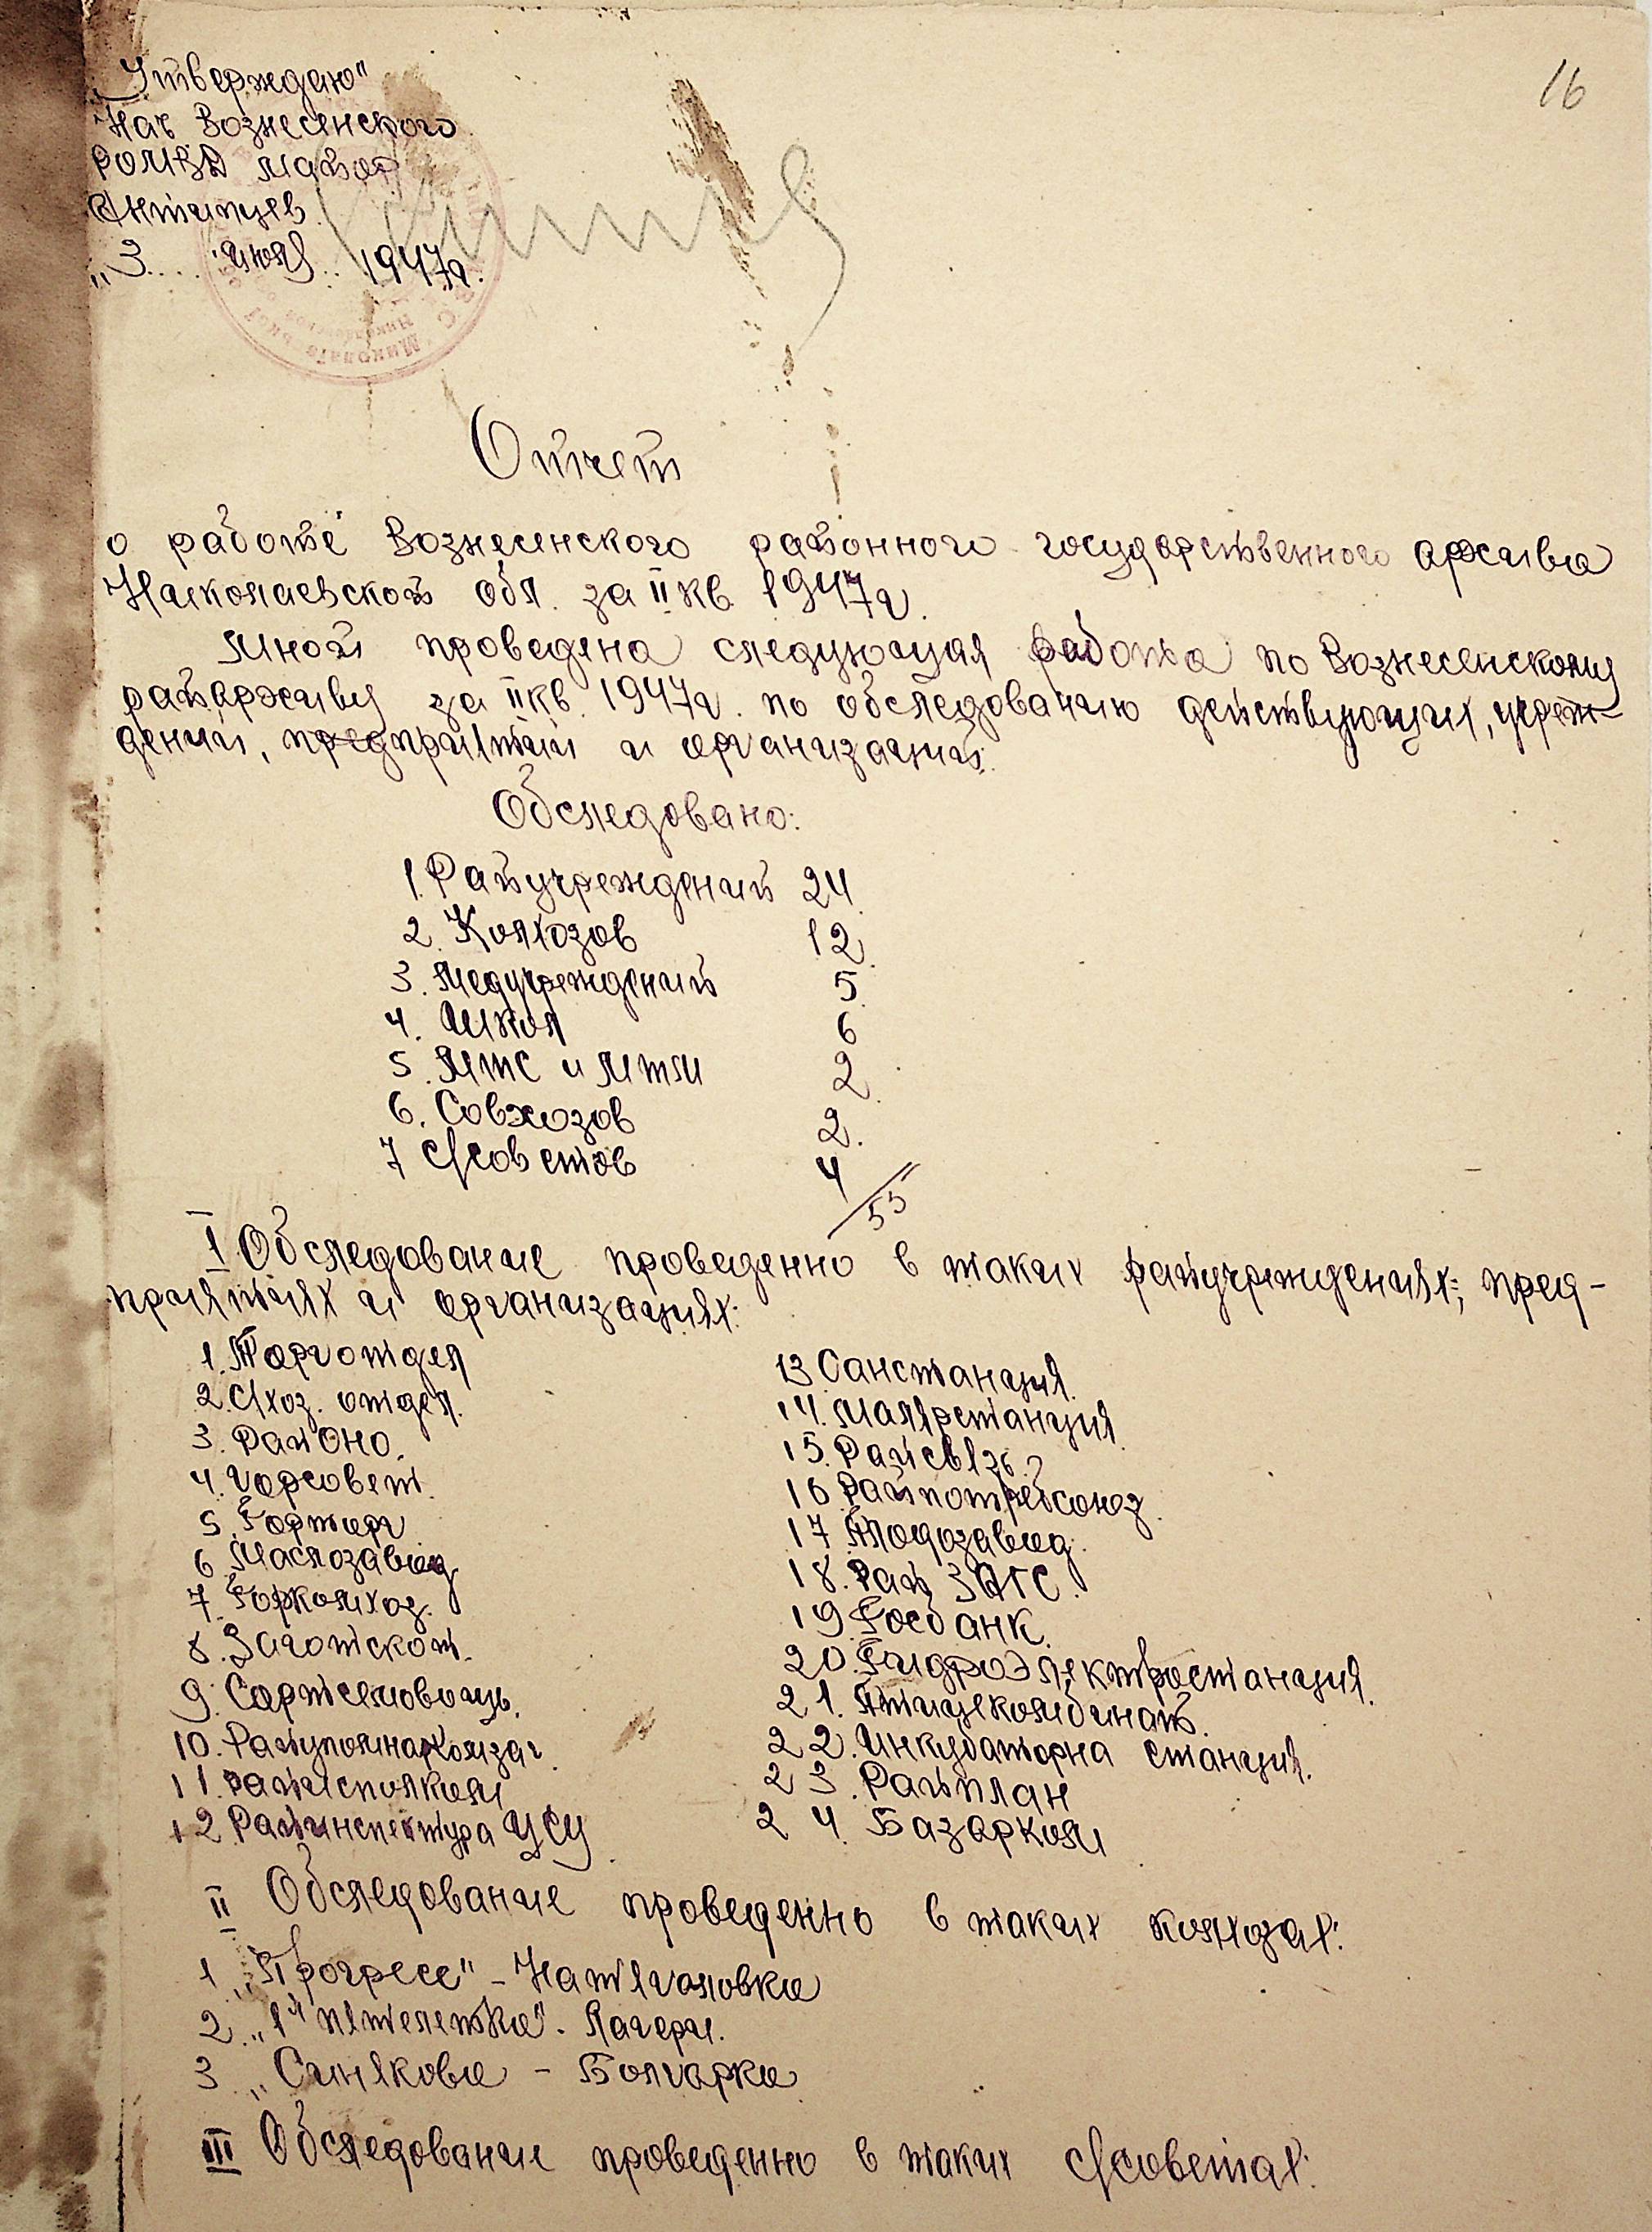 16
„Утверждаю"
Нач Вознесенского
РОМВД майор
Антипцев
„3.... июля.. 1947г.
Отчет
о работе Вознесенского районного государственного архива
Николаевской обл. за II кв. 1947г.
Мной проведена следующая работа по Вознесенскому
райархиву за II кв. 1947г. по обследованию действующих, учреж-
дений, предприятий и организаций:
Обследовано:
1. Райучреждений 24.
2. Колхозов 12.
3. Медучреждений 5.
4. Школ 6
5. МТС и МТМ 2.
6. Совхозов 2.
7 с/советов 4
55
I Обследование проведенно в таких райучреждениях:, пред-
приятиях и организациях:
1. Торготдел
2. С/хоз. отдел.
3. РайОНО.
4. Горсовет.
5. Горторг
6 Маслозавод
7. Горколхоз.
8. Заготскот.
9. Сортсемовощ.
10. Райуполнаркомзаг.
11. Райисполком
12. Райинспектура ЦСУ.
13 Санстанция.
14. Малярстанция.
15. Райсвязь.
16 Райпотребсоюз.
17 Плодозавод.
18. Рай ЗАГС.
19 Госбанк.
20. ГидроЭлектростанция.
21. Птицекомбинат.
22. Инкубаторна станция.
23. Райплан
24. Базарком
II Обследование проведенно в таких колхозах:
1 „Прогресс" - Натягаловка
2. „1я пятелетка". Лагери.
3 „Синякова - Болгарка
III Обследование проведенно в таких с/советах: